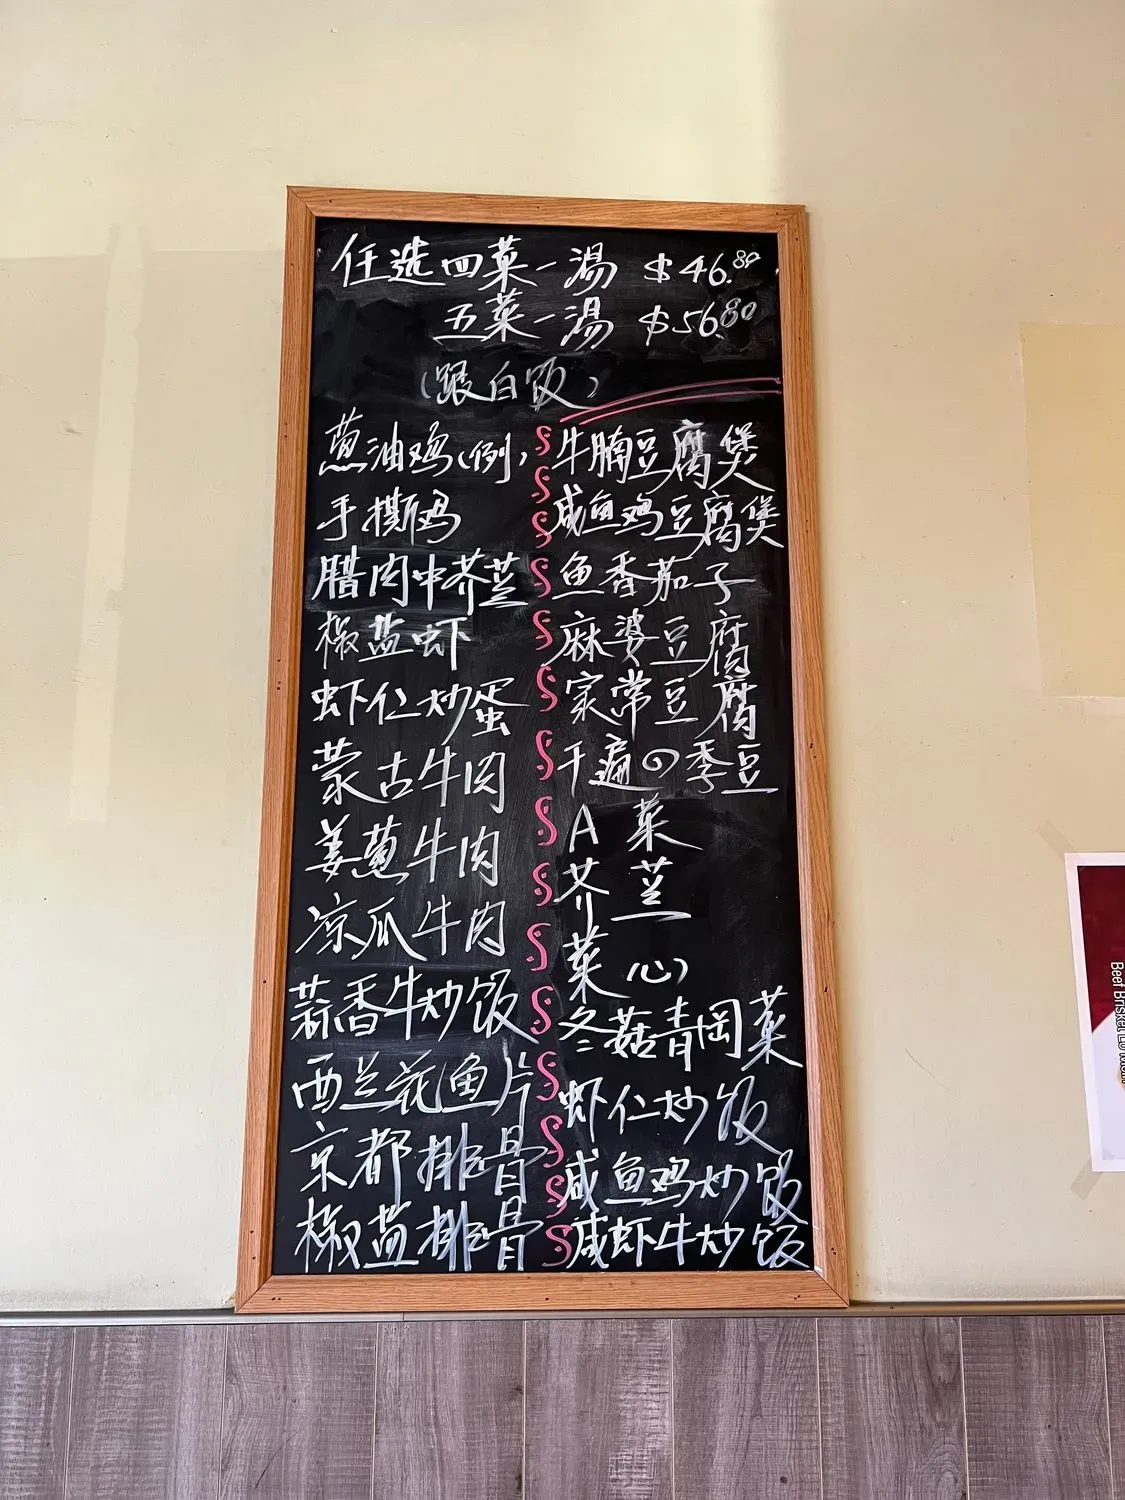 任选四菜一湯 $46.80
五菜一湯 $56.80
(跟白饭)
葱油鸡(例)
手撕鸡
腊肉中芥兰
椒盐虾
虾仁炒蛋
蒙古牛肉
姜葱牛肉
凉瓜牛肉
蒜香牛炒饭
西兰花鱼片
京都排骨
椒盐排骨
牛腩豆腐煲
咸鱼鸡豆腐煲
鱼香茄子
麻婆豆腐
家常豆腐
干扁四季豆
A菜
芥兰
菜心
冬菇青岡菜
虾仁炒饭
咸鱼鸡炒饭
咸虾牛炒饭